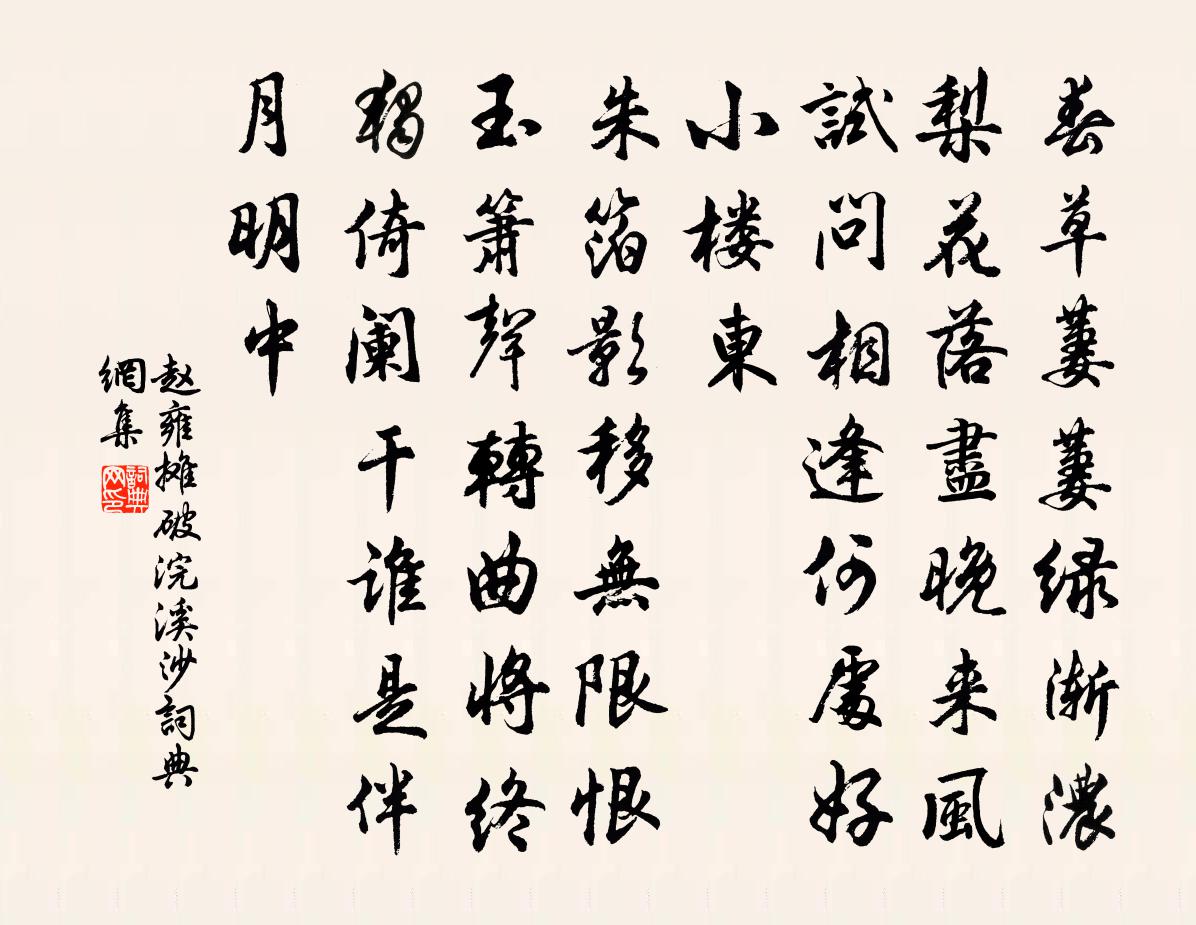 春草萋萋绿渐濃
梨花落盡晚来風
試問相逢何處好
小楼東
朱箔影移無限恨
玉簫聲轉曲將终
獨倚阑干谁是伴
月明中
赵雍摊破浣溪沙詞典
網集
詞典
网印